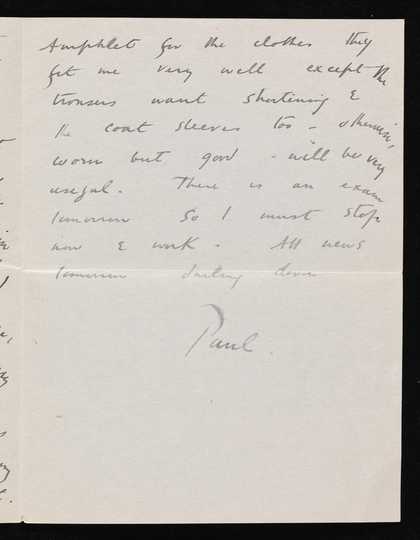 Amphlet for the clothes they
fit me very well except the
trousers want shortening &
the coat sleeves too - otherwise,
worn but good - will be very
useful. There is an exam
tomorrow so I must stop
now & work. All news
tomorrow darling
Paul.